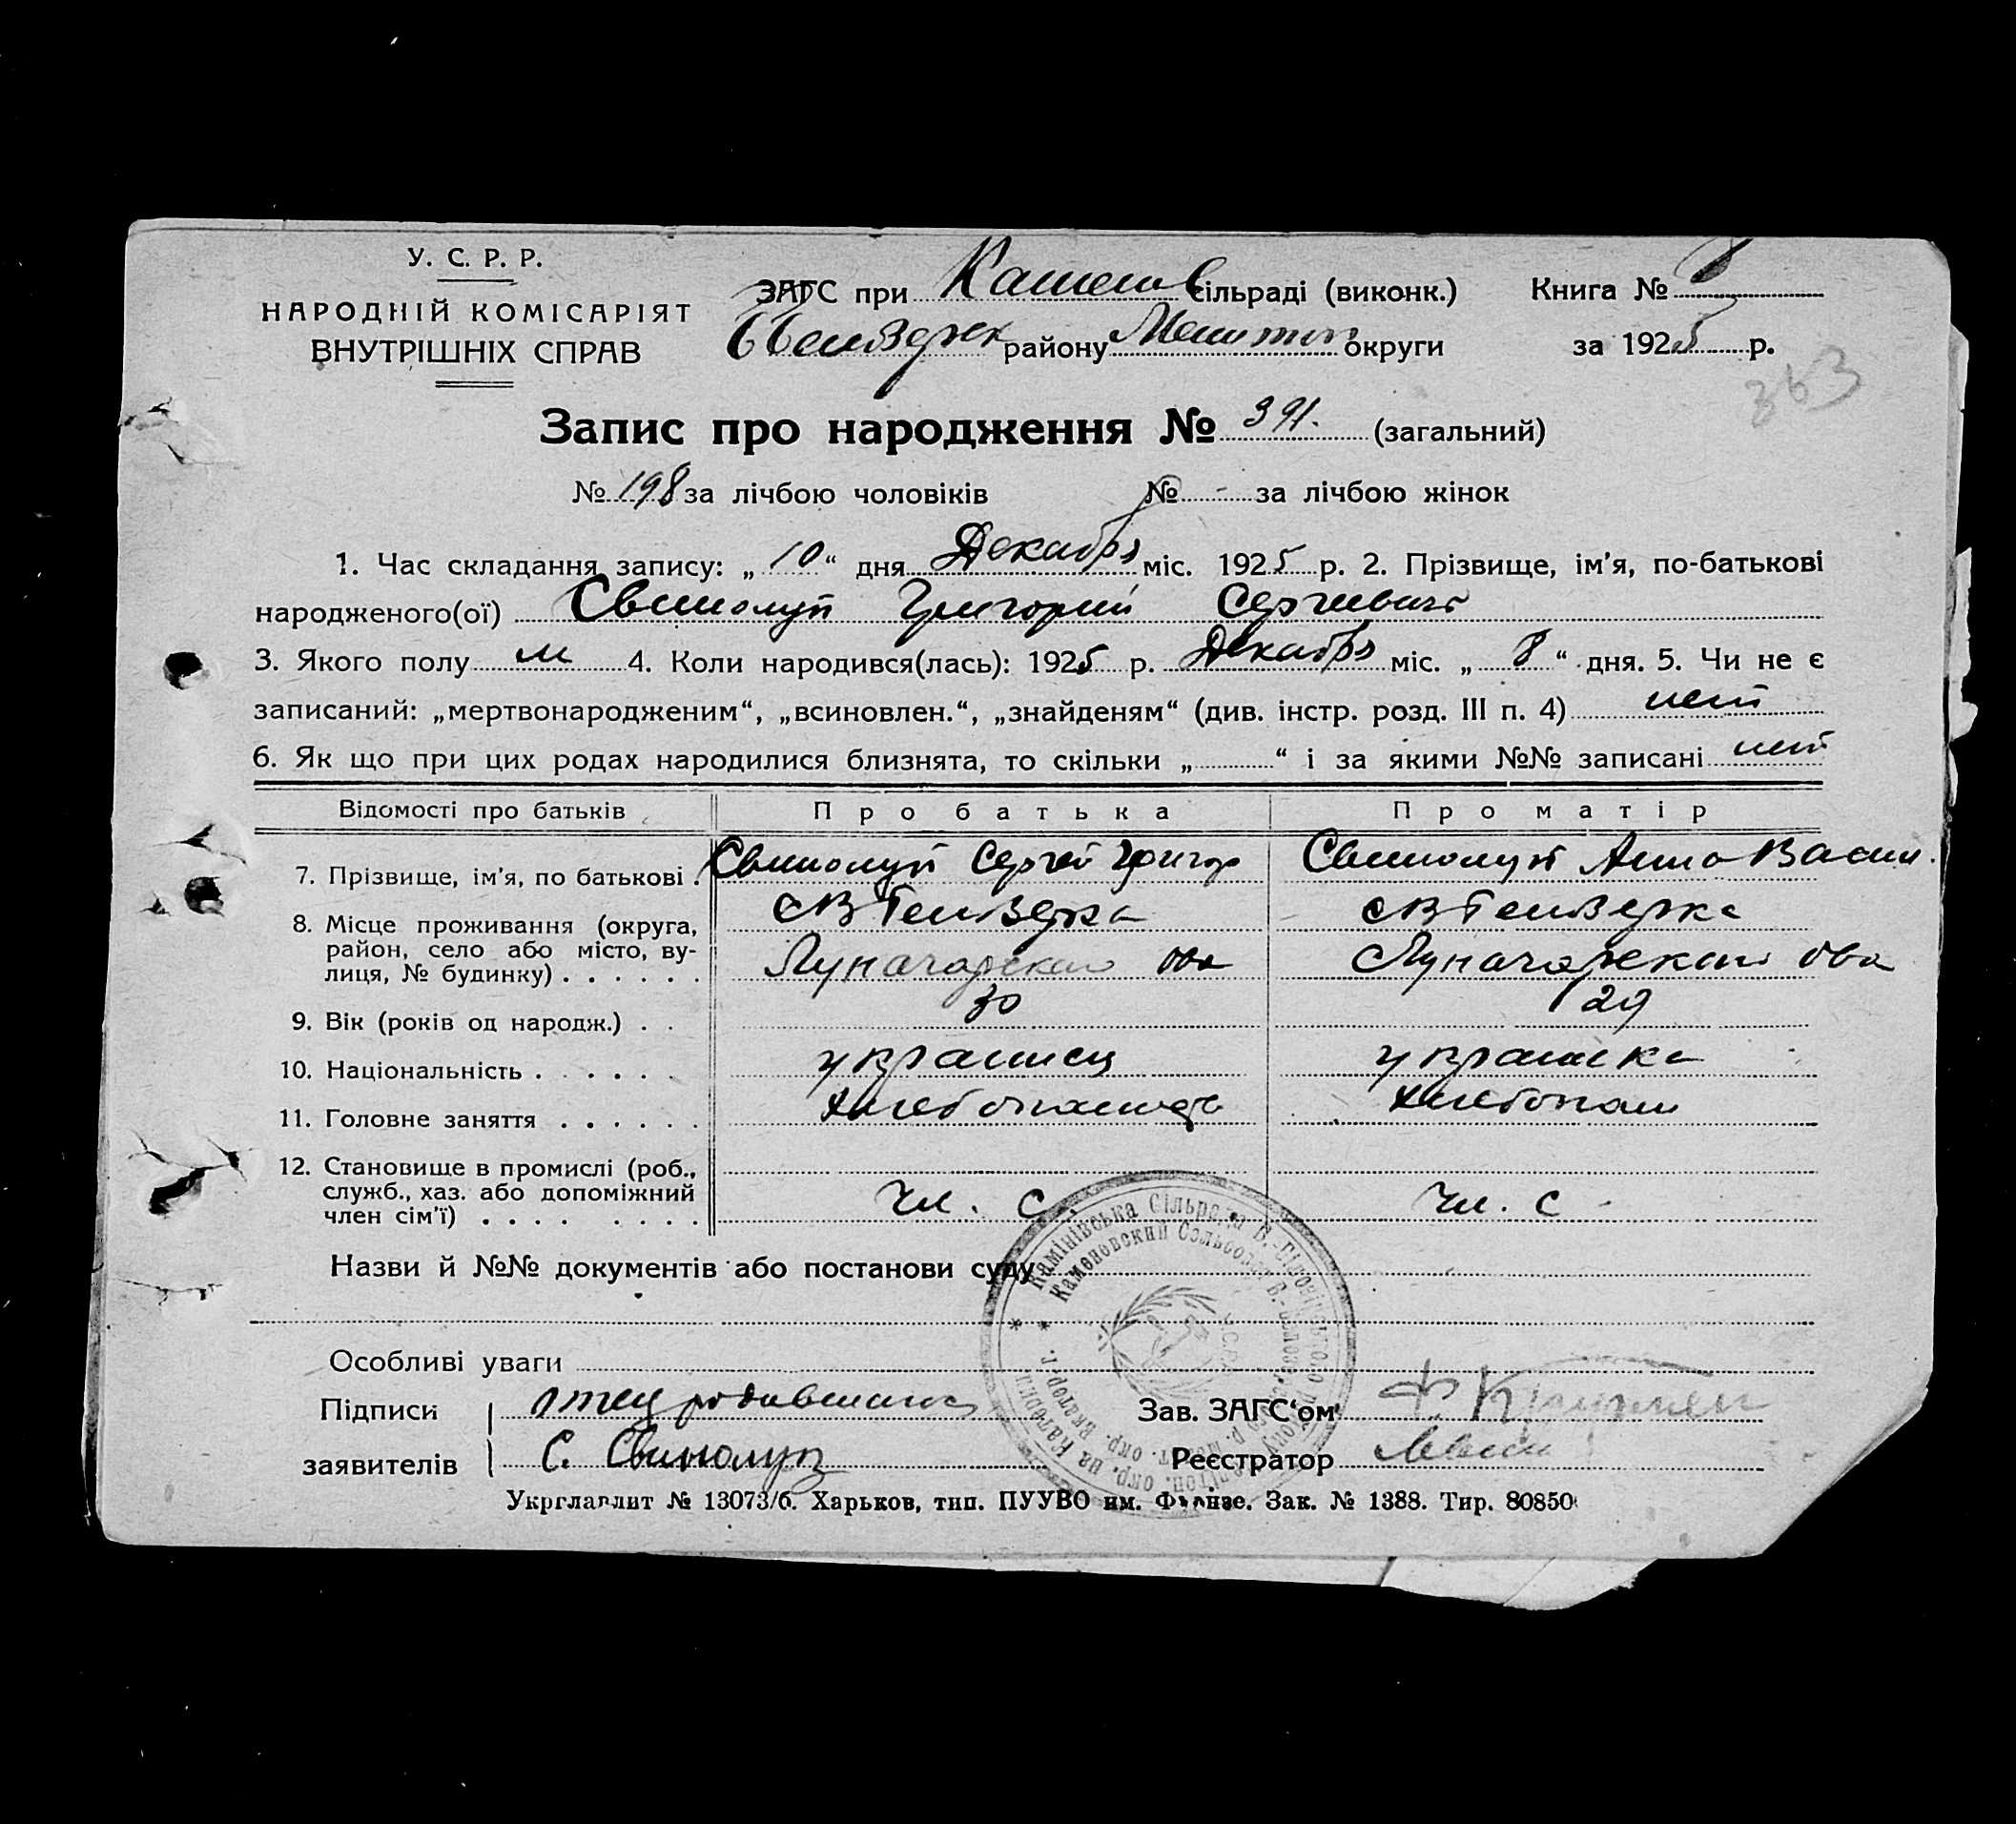 У. С. Р. Р.
НАРОДНІЙ КОМІСАРІЯТ
ВНУТРІШНІХ СПРАВ
ЗАГС при Каменов сільраді (виконк.)
району Мелитоп округи
Книга №
за 1925 р.
363
Запис про народження № 391. (загальний)
№ 198 за лічбою чоловіків № - за лічбою жінок
1. Час складання запису: „ 10 “ дня Декабря міс. 1925 р. 2. Прізвище, ім'я, по-батькові
народженого(ої) Свинолуп Григорий Сергиевич
3. Якого полу м 4. Коли народився(лась): 1925 р. Декабря міс. „ 8 “ дня. 5. Чи не є
записаний: „мертвонародженим“, „всиновлен.“, „знайденям“ (див. інстр. розд. III п. 4) нет
6. Як що при цих родах народилися близнята, то скільки „ “ і за якими №№ записані нет
Відомості про батьків Про батька Про матір
7. Прізвище, ім'я, по батькові . Свинолуп Сергей Григор Свинолуп Анна Васил.
8. Місце проживання (округа,
район, село або місто, ву-
лиця, № будинку) . . . . . .
Луначарского Луначарского
9. Вік (років од народж.) . . 30 29
10. Національність . . . . . . украинец украинка
11. Головне заняття . . . . . . хлебопашец хлебопаш
12. Становище в промислі (роб.,
служб., хаз. або допоміжний
член сім'ї) . . . . . . . . чл. с. чл. с
Назви й №№ документів або постанови суду
Особливі уваги
Підписи отец родившагося Зав. ЗАГС‘ом
заявителів С. Свинолуп Реєстратор
Укрглавлит № 13073/б. Харьков, тип. ПУУВО им. Фрунзе. Зак. № 1388. Тир. 80850
Камінівська Сільрада
Каменовский Сельсовет